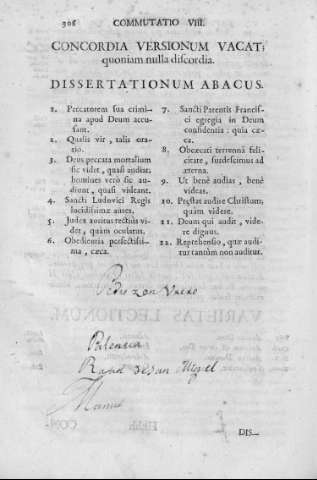 306 COMMUTATIO VIII.
CONCORDIA VERSIONUM VACAT;
quoniam nulla discordia.
DISSERTATIONUM ABACUS.
1. Peccatorem sua crimi-
na apud Deum accu-
sant.
2. Qualis vir, talis ora-
tio.
3. Deus peccata mortalium
sic videt, quasi audiat:
homines verò sic au-
diunt, quasi videant.
4. Sancti Ludovici Regis
lucidissimæ aures.
5. Judex auritus rectiùs vi-
det, quàm oculatus.
6. Obedientia perfectissi-
ma, cæca.
7. Sancti Parentis Francis-
ci egregia in Deum
confidentia: quia cæ-
ca.
8. Obcæcati terrenâ feli-
citate, surdescimus ad
æterna.
9. Ut benè audias, benè
videas.
10. Præstat audire Christum,
quàm videre.
11. Deum qui audit, vide-
re dignus.
12. Reprehensio, quæ audi-
tur tantùm non auditur.
Pedro
Palencia
San Miguel
Manuel
VARIETAS LECTIONUM.
COM-
DIS-